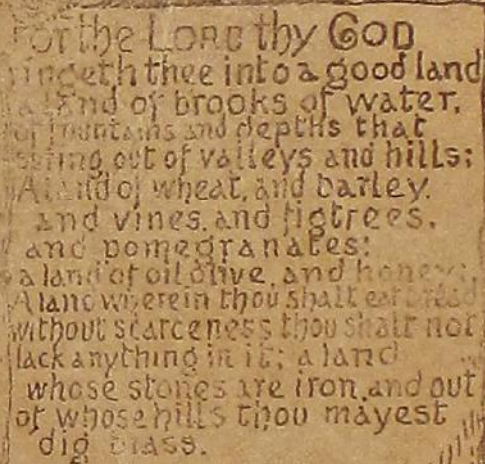 For the LORD thy GOD
ingeth thee into a good land
a land of brooks of water,
of fountains and depths that
spring out of valleys and hills;
A land of wheat, and barley,
and vines, and figtrees,
and pomegranates;
a land of oil olive, and honey;
A land wherein thou shalt eat bread
without scarceness thou shalt not
lack anything in it; a land
whose stones are iron, and out
of whose hills thou mayest
dig brass.